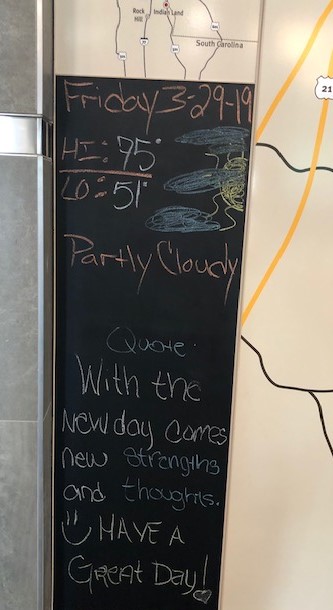 Rock Hill
Indian Land
South Carolina
21
Friday 3-29-19
HI: 75°
LO: 51°
Partly Cloudy
Quote:
With the
New day comes
new strengths
and thoughts.
HAVE A
Great Day!